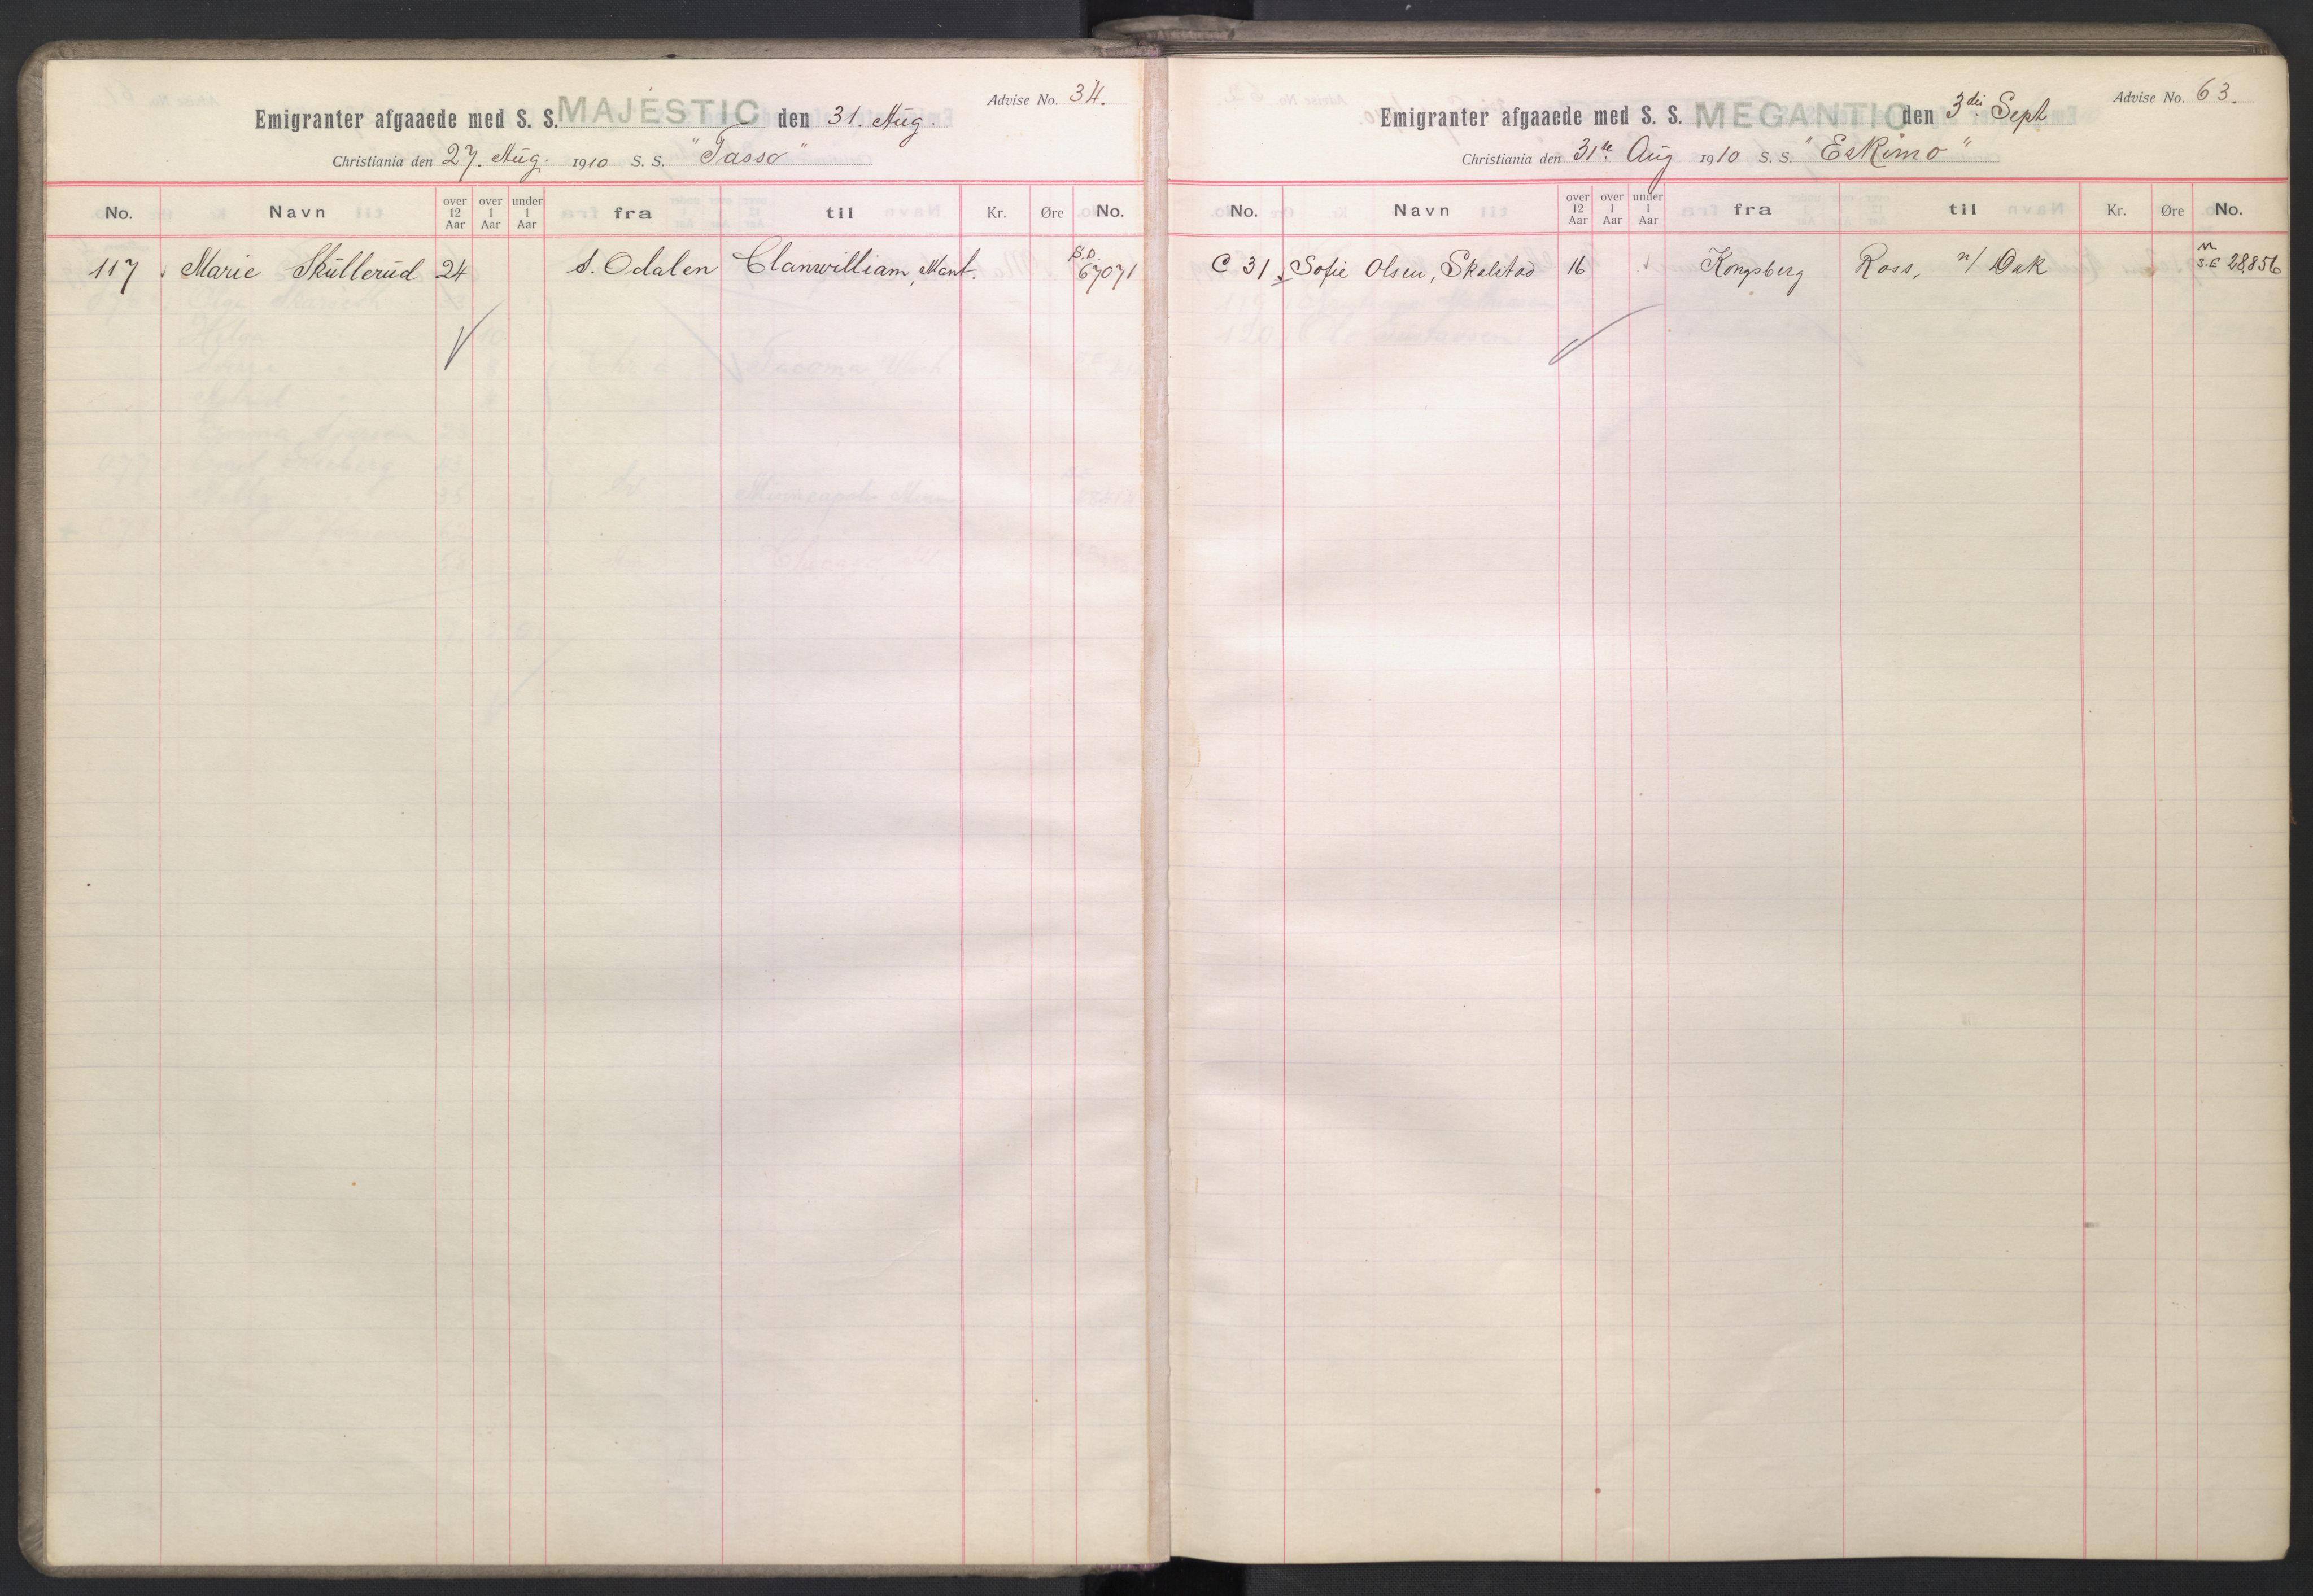 Advise No. 34.
Emigranter afgaaede med S. S. MAJESTIC den 31. Aug.
Christiania den 27. Aug. 1910 S. S. "Tasso"
No. Navn over 12 Aar over 1 Aar under 1 Aar fra til Kr. Øre No.
117 Marie Skullerud 24 S. Odalen Clanwilliam, Mant. S.D. 67071
Advise No. 63.
Emigranter afgaaede med S. S. MEGANTIC den 3die Sept
Christiania den 31te Aug 1910 S. S. "Eskimo"
No. Navn over 12 Aar over 1 Aar under 1 Aar fra til Kr. Øre No.
C 31 Sofie Olsen, Skalstad 16 Kongsberg Ross, n/ Dak S.E 28856